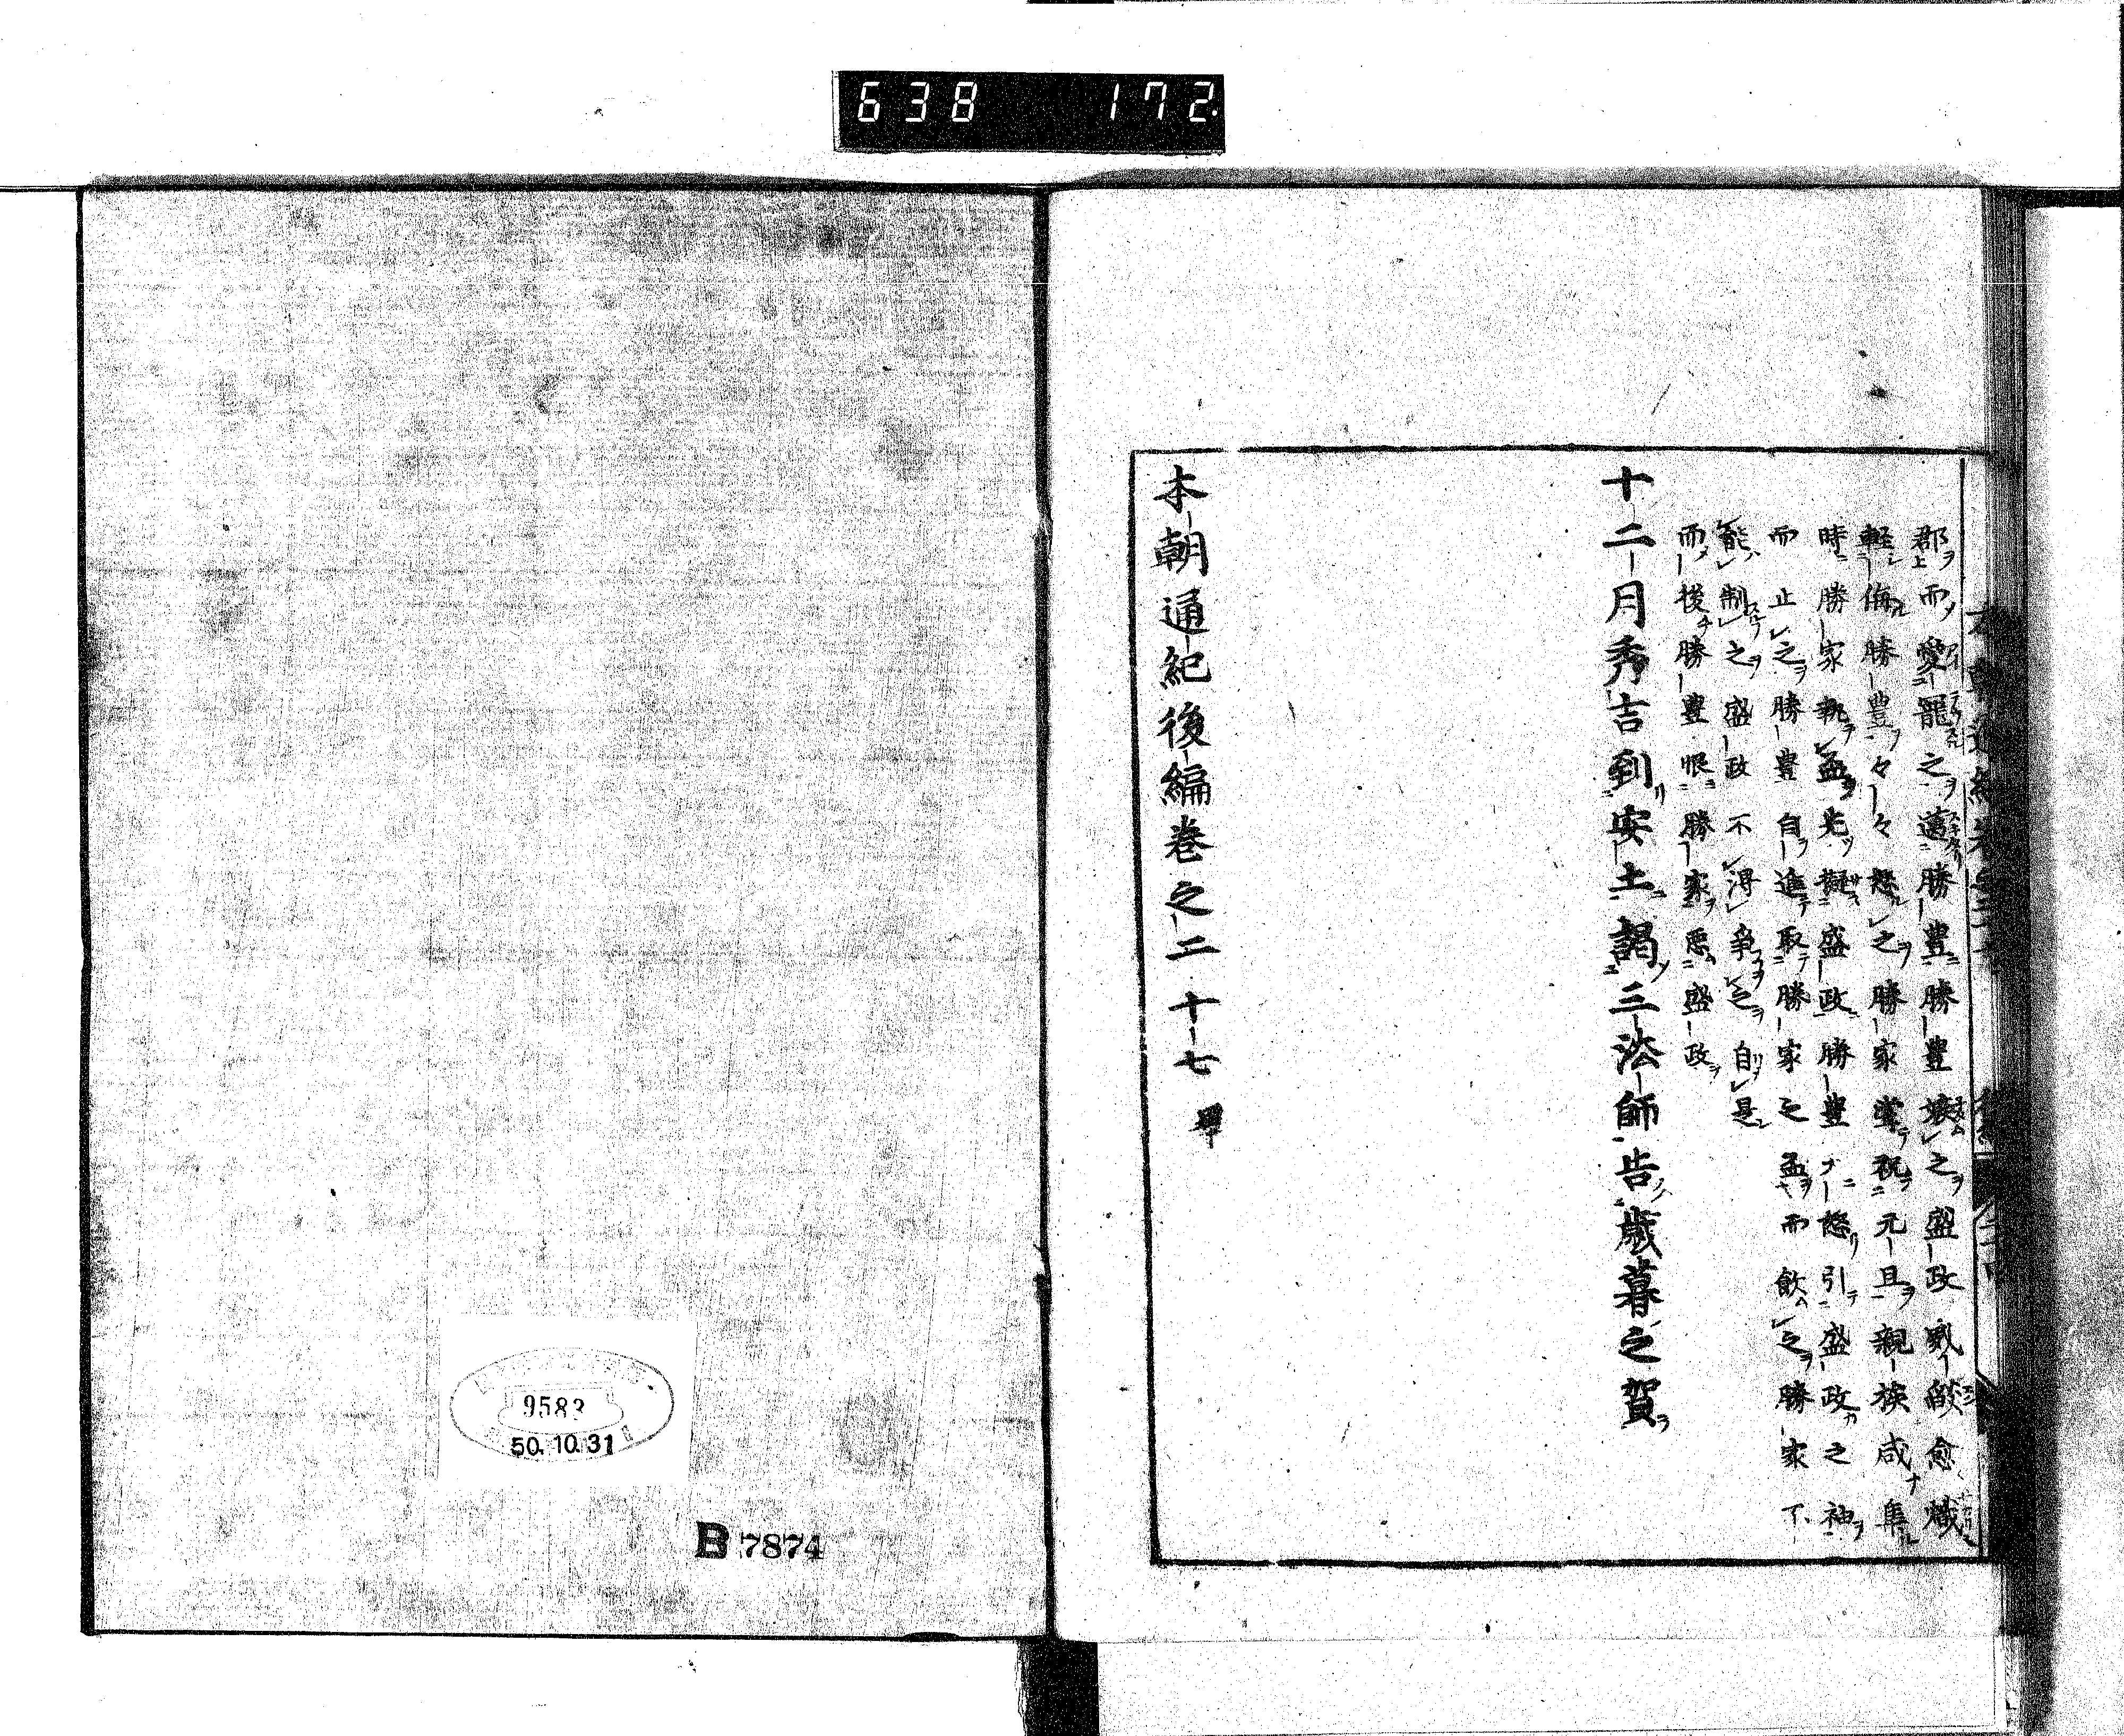 638 172.
郡而愛寵之邁勝豊勝豊嫉之盛政威燄愈熾
軽侮勝豊々々怒之勝家嘗祝元旦親族咸集
時勝家執盃先擬盛政勝豊大怒引盛政之袖
而止之勝豊自進取勝家之盃而飲之勝家不
能制之盛政不得争之自是
而後勝豊恨勝家悪盛政
十二月秀吉到安土謁三法師告歳暮之賀
本朝通紀後編巻之二十七 畢
9583
50.10.31
B 7874